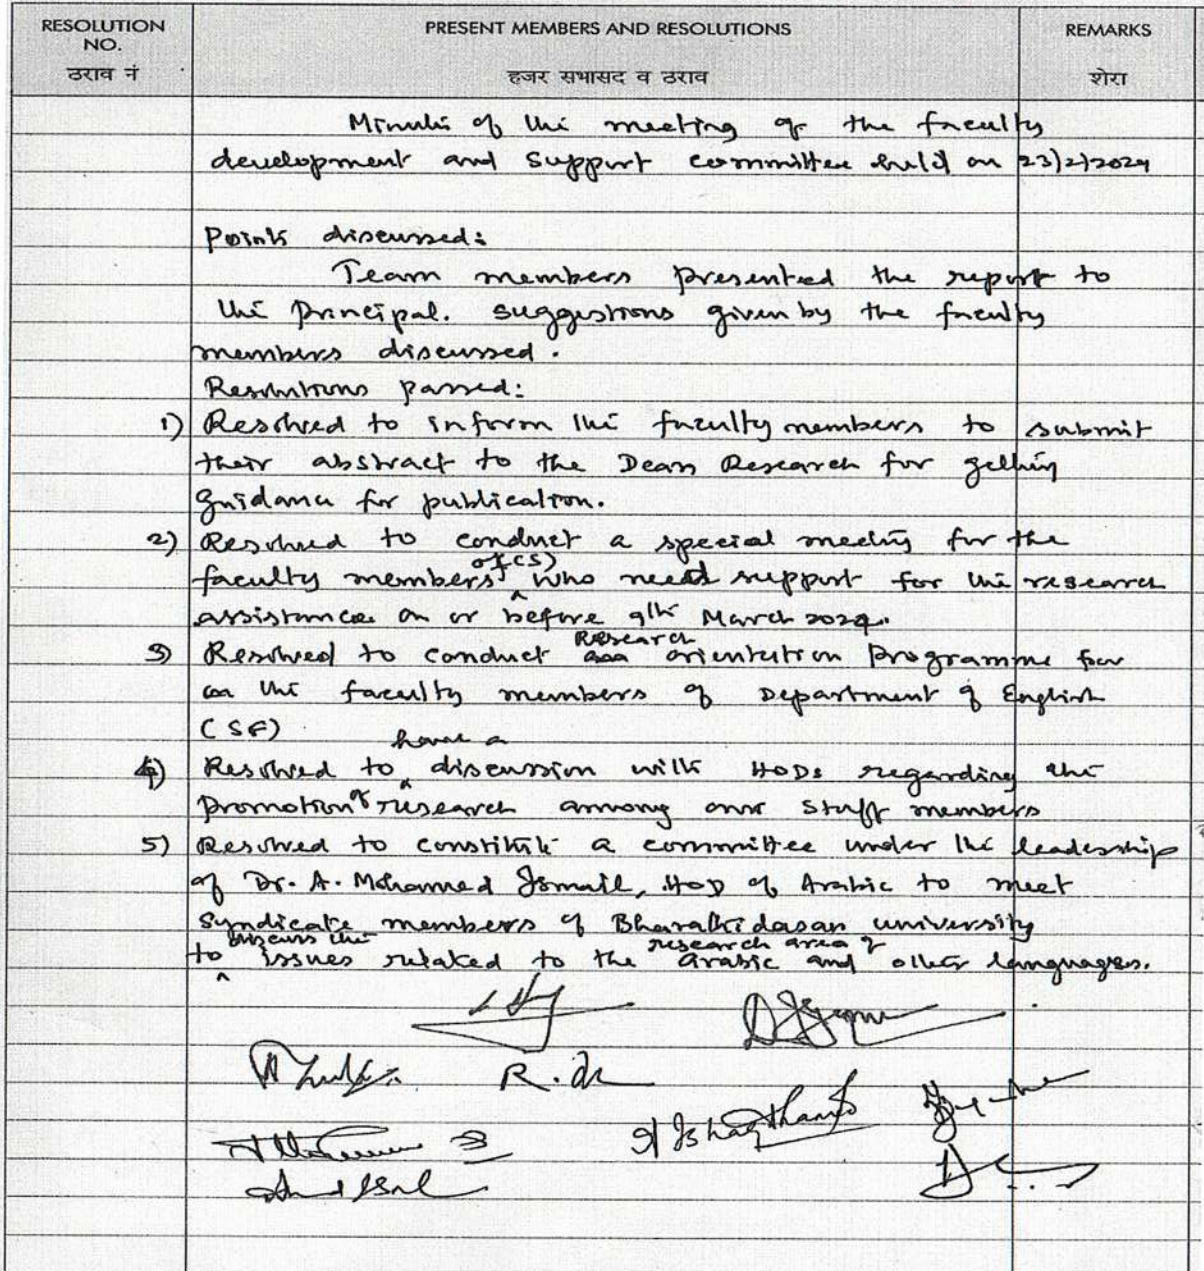 RESOLUTION NO.
ठराव नं
PRESENT MEMBERS AND RESOLUTIONS
हजर सभासद व ठराव
REMARKS
शेरा
Minutes of the meeting of the faculty
development and support committee held on 23/2/2024
Points discussed:
Team members presented the report to
the Principal. suggestions given by the faculty
members discussed.
Resolutions passed:
1) Resolved to inform the faculty members to submit
their abstract to the Dean Research for getting
guidance for publication.
2) Resolved to conduct a special meeting for the
faculty members of (CS) who need support for the research
assistance on or before 9th March 2024.
3) Resolved to conduct Research orientation Programme for
the faculty members of Department of English
(SF)
4) Resolved to have a discussion with HODs regarding the
promotion of research among our staff members
5) Resolved to constitute a committee under the leadership
of Dr. A. Mohamed Ismail, HOD of Arabic to meet
syndicate members of Bharathidasan university
to discuss the issues related to the research area of Arabic and other languages.